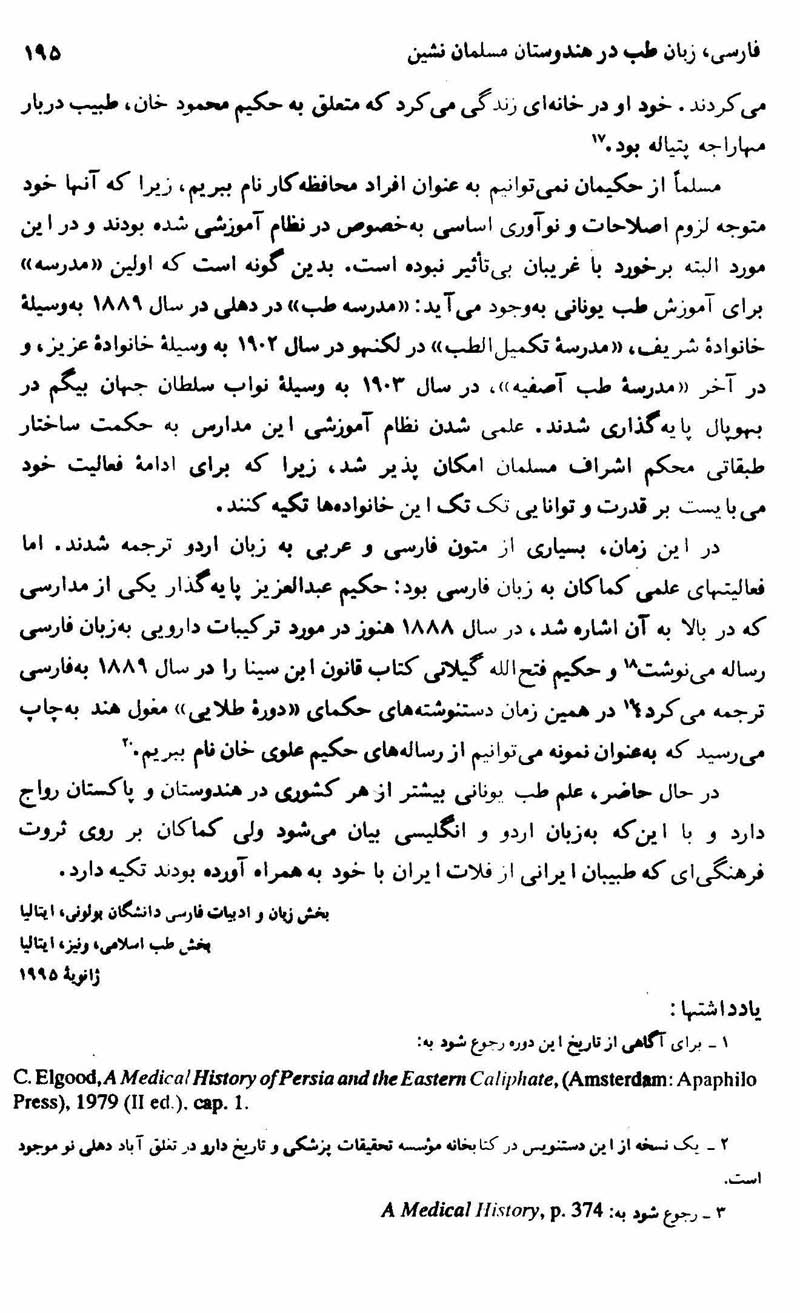 فارسی، زبان طب در هندوستان مسلمان نشین ۱۹۵
می‌کردند. خود او در خانه‌ای زندگی می‌کرد که متعلق به حکیم محمود خان، طبیب دربار
مهاراجه پتیاله بود.۱۷
مسلماً از حکیمان نمی‌توانیم به عنوان افراد محافظه‌کار نام ببریم، زیرا که آنها خود
متوجه لزوم اصلاحات و نوآوری اساسی به‌خصوص در نظام آموزشی شده بودند و در این
مورد البته برخورد با غربیان بی‌تأثیر نبوده است. بدین گونه است که اولین «مدرسه»
برای آموزش طب یونانی به‌وجود می‌آید: «مدرسه طب» در دهلی در سال ۱۸۸۹ به‌وسیلهٔ
خانوادهٔ شریف، «مدرسهٔ تکمیل‌الطب» در لکنهو در سال ۱۹۰۲ به وسیلهٔ خانوادهٔ عزیز، و
در آخر «مدرسهٔ طب آصفیه»، در سال ۱۹۰۳ به وسیلهٔ نواب سلطان جهان بیگم در
بهوپال پایه‌گذاری شدند. علمی شدن نظام آموزشی این مدارس به حکمت ساختار
طبقاتی محکم اشراف مسلمان امکان پذیر شد، زیرا که برای ادامهٔ فعالیت خود
می‌بایست بر قدرت و توانایی تک تک این خانواده‌ها تکیه کنند.
در این زمان، بسیاری از متون فارسی و عربی به زبان اردو ترجمه شدند. اما
فعالیتهای علمی کماکان به زبان فارسی بود: حکیم عبدالعزیز پایه‌گذار یکی از مدارسی
که در بالا به آن اشاره شد، در سال ۱۸۸۸ هنوز در مورد ترکیبات دارویی به‌زبان فارسی
رساله می‌نوشت۱۸ و حکیم فتح‌الله گیلانی کتاب قانون ابن سینا را در سال ۱۸۸۹ به‌فارسی
ترجمه می‌کرد؛۱۹ در همین زمان دستنوشته‌های حکمای «دورهٔ طلایی» مغول هند به‌چاپ
می‌رسید که به‌عنوان نمونه می‌توانیم از رساله‌های حکیم علوی خان نام ببریم.۲۰
در حال حاضر، علم طب یونانی بیشتر از هر کشوری در هندوستان و پاکستان رواج
دارد و با این‌که به‌زبان اردو و انگلیسی بیان می‌شود ولی کماکان بر روی ثروت
فرهنگی‌ای که طبیبان ایرانی از فلات ایران با خود به همراه آورده بودند تکیه دارد.
بخش زبان و ادبیات فارسی دانشگان بولونی، ایتالیا
بخش طب اسلامی، ونیز، ایتالیا
ژانویهٔ ۱۹۹۵
یادداشتها:
۱ ـ برای آگاهی از تاریخ این دوره رجوع شود به:
C. Elgood, A Medical History of Persia and the Eastern Caliphate, (Amsterdam: Apaphilo
Press), 1979 (II ed.). cap. 1.
۲ ـ یک نسخه از این دستنویس در کتابخانه مؤسسه تحقیقات پزشکی و تاریخ دارو در تغلق آباد دهلی نو موجود
است.
۳ ـ رجوع شود به: A Medical History, p. 374